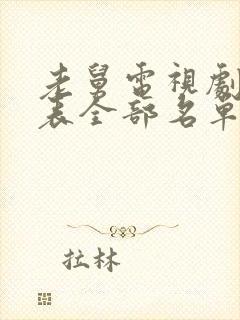 老舅電視劇
表全部名單
拉林